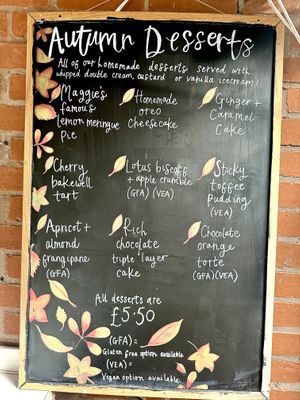 Autumn Desserts
All of our homemade desserts served with
whipped double cream, custard or vanilla icecream!
Maggie's
famous
lemon meringue
Pie
Homemade
oreo
Cheesecake
Ginger +
Caramel
Cake
Cherry
bakewell
tart
Lotus biscoff
+ apple crumble
(GFA) (VEA)
Sticky
toffee
pudding
(VEA)
Apricot +
almond
frangipane
(GFA)
Rich
chocolate
triple layer
cake
Chocolate
orange
torte
(GFA)(VEA)
All desserts are
£5.50
(GFA)=
Gluten free option available
(VEA)=
Vegan option available